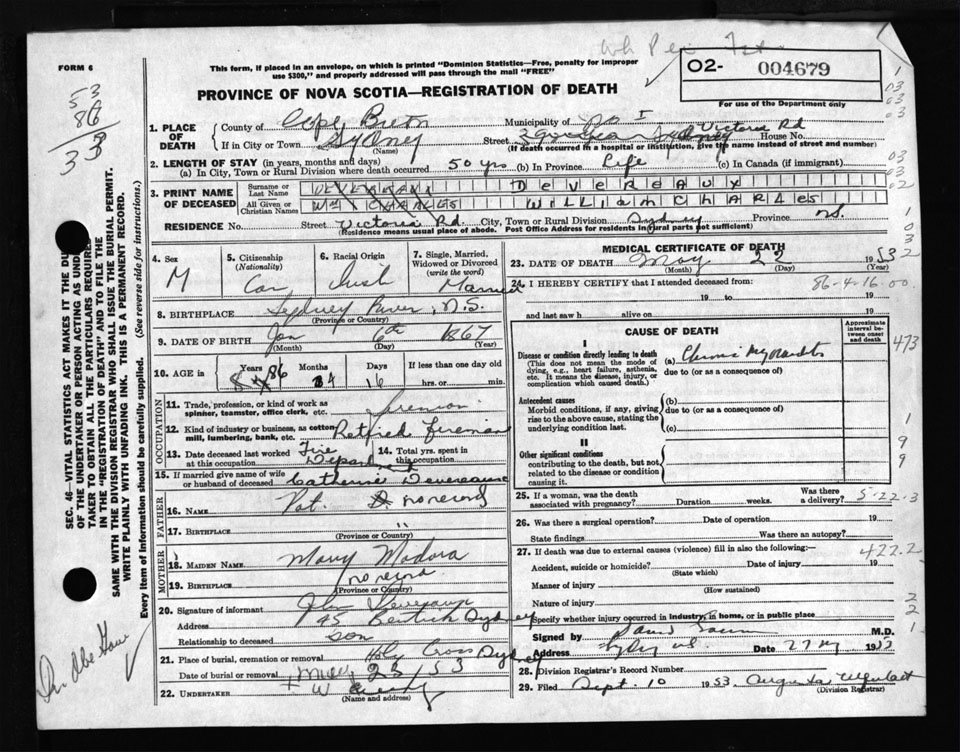 FORM 6
This form, if placed in an envelope, on which is printed "Dominion Statistics—Free, penalty for improper
use $300," and properly addressed will pass through the mail "FREE"
O2- 004679
For use of the Department only
PROVINCE OF NOVA SCOTIA—REGISTRATION OF DEATH
53
86
33
1. PLACE OF DEATH
County of Cape Breton Municipality of
If in City or Town Sydney (Name) Street Victoria Rd House No.
(If death occurred in a hospital or institution, give the name instead of street and number)
2. LENGTH OF STAY (in years, months and days)
(a) In City, Town or Rural Division where death occurred 50 yrs (b) In Province Life (c) In Canada (if immigrant)
3. PRINT NAME OF DECEASED
Surname or Last Name DEVEREAUX
All Given or Christian Names WILLIAM CHARLES
RESIDENCE No. Street Victoria Rd. City, Town or Rural Division Sydney Province N.S.
(Residence means usual place of abode. Post Office Address for residents in rural parts not sufficient)
SEC. 46—VITAL STATISTICS ACT MAKES IT THE DU
OF THE UNDERTAKER OR PERSON ACTING AS UND
TAKER TO OBTAIN ALL THE PARTICULARS REQUIRE
IN THE "REGISTRATION OF DEATH" AND TO FILE THE
SAME WITH THE DIVISION REGISTRAR WHO SHALL ISSUE THE BURIAL PERMIT.
WRITE PLAINLY WITH UNFADING INK. THIS IS A PERMANENT RECORD.
Every item of information should be carefully supplied. (See reverse side for instructions.)
4. Sex M
5. Citizenship (Nationality) Can
6. Racial Origin Irish
7. Single, Married, Widowed or Divorced (write the word) Married
8. BIRTHPLACE Sydney River, N.S.
(Province or Country)
9. DATE OF BIRTH Jan 6th 1867
(Month) (Day) (Year)
10. AGE in Years 86 Months 4 Days 16 If less than one day old hrs. or min.
OCCUPATION
11. Trade, profession, or kind of work as spinner, teamster, office clerk, etc. Fireman
12. Kind of industry or business, as cotton mill, lumbering, bank, etc. Retired fireman
13. Date deceased last worked at this occupation Fire Department
14. Total yrs. spent in this occupation
15. If married give name of wife or husband of deceased Catherine Devereaux
FATHER
16. NAME Pat. D no record
17. BIRTHPLACE "
(Province or Country)
MOTHER
18. MAIDEN NAME Mary
19. BIRTHPLACE no record
(Province or Country)
20. Signature of informant John Devereaux
Address 45 Sydney
Relationship to deceased son
21. Place of burial, cremation or removal Holy Cross Sydney
Date of burial or removal May 25 53
22. UNDERTAKER
(Name and address)
MEDICAL CERTIFICATE OF DEATH
23. DATE OF DEATH May 22 1953
(Month) (Day) (Year)
24. I HEREBY CERTIFY that I attended deceased from: 86-4-16-00
19 to 19
and last saw h alive on 19
CAUSE OF DEATH
Approximate interval between onset and death
I
Disease or condition directly leading to death (a) Chronic Myocarditis
(This does not mean the mode of dying, e.g., heart failure, asthenia, etc. It means the disease, injury, or complication which caused death.)
due to (or as a consequence of)
Antecedent causes (b)
Morbid conditions, if any, giving rise to the above cause, stating the underlying condition last.
due to (or as a consequence of)
(c)
II
Other significant conditions
contributing to the death, but not related to the disease or condition causing it.
473
1
9
9
25. If a woman, was the death associated with pregnancy? Duration weeks. Was there a delivery? 5-22-3
26. Was there a surgical operation? Date of operation 19
State findings Was there an autopsy?
27. If death was due to external causes (violence) fill in also the following: 422.2
Accident, suicide or homicide? Date of injury 19
(State which)
Manner of injury
(How sustained)
Nature of injury
Specify whether injury occurred in industry, in home, or in public place
2
2
1
Signed by M.D.
Address Sydney N.S. Date 27 My 1953
28. Division Registrar's Record Number
29. Filed Sept. 10 1953
(Division Registrar)